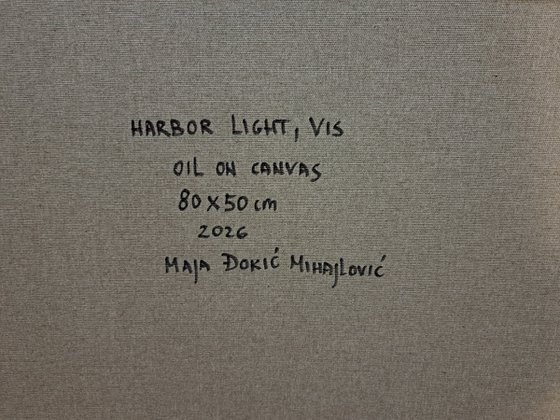 HARBOR LIGHT, VIS
OIL ON CANVAS
80 X 50 cm
2026
MAJA ĐOKIĆ MIHAJLOVIĆ